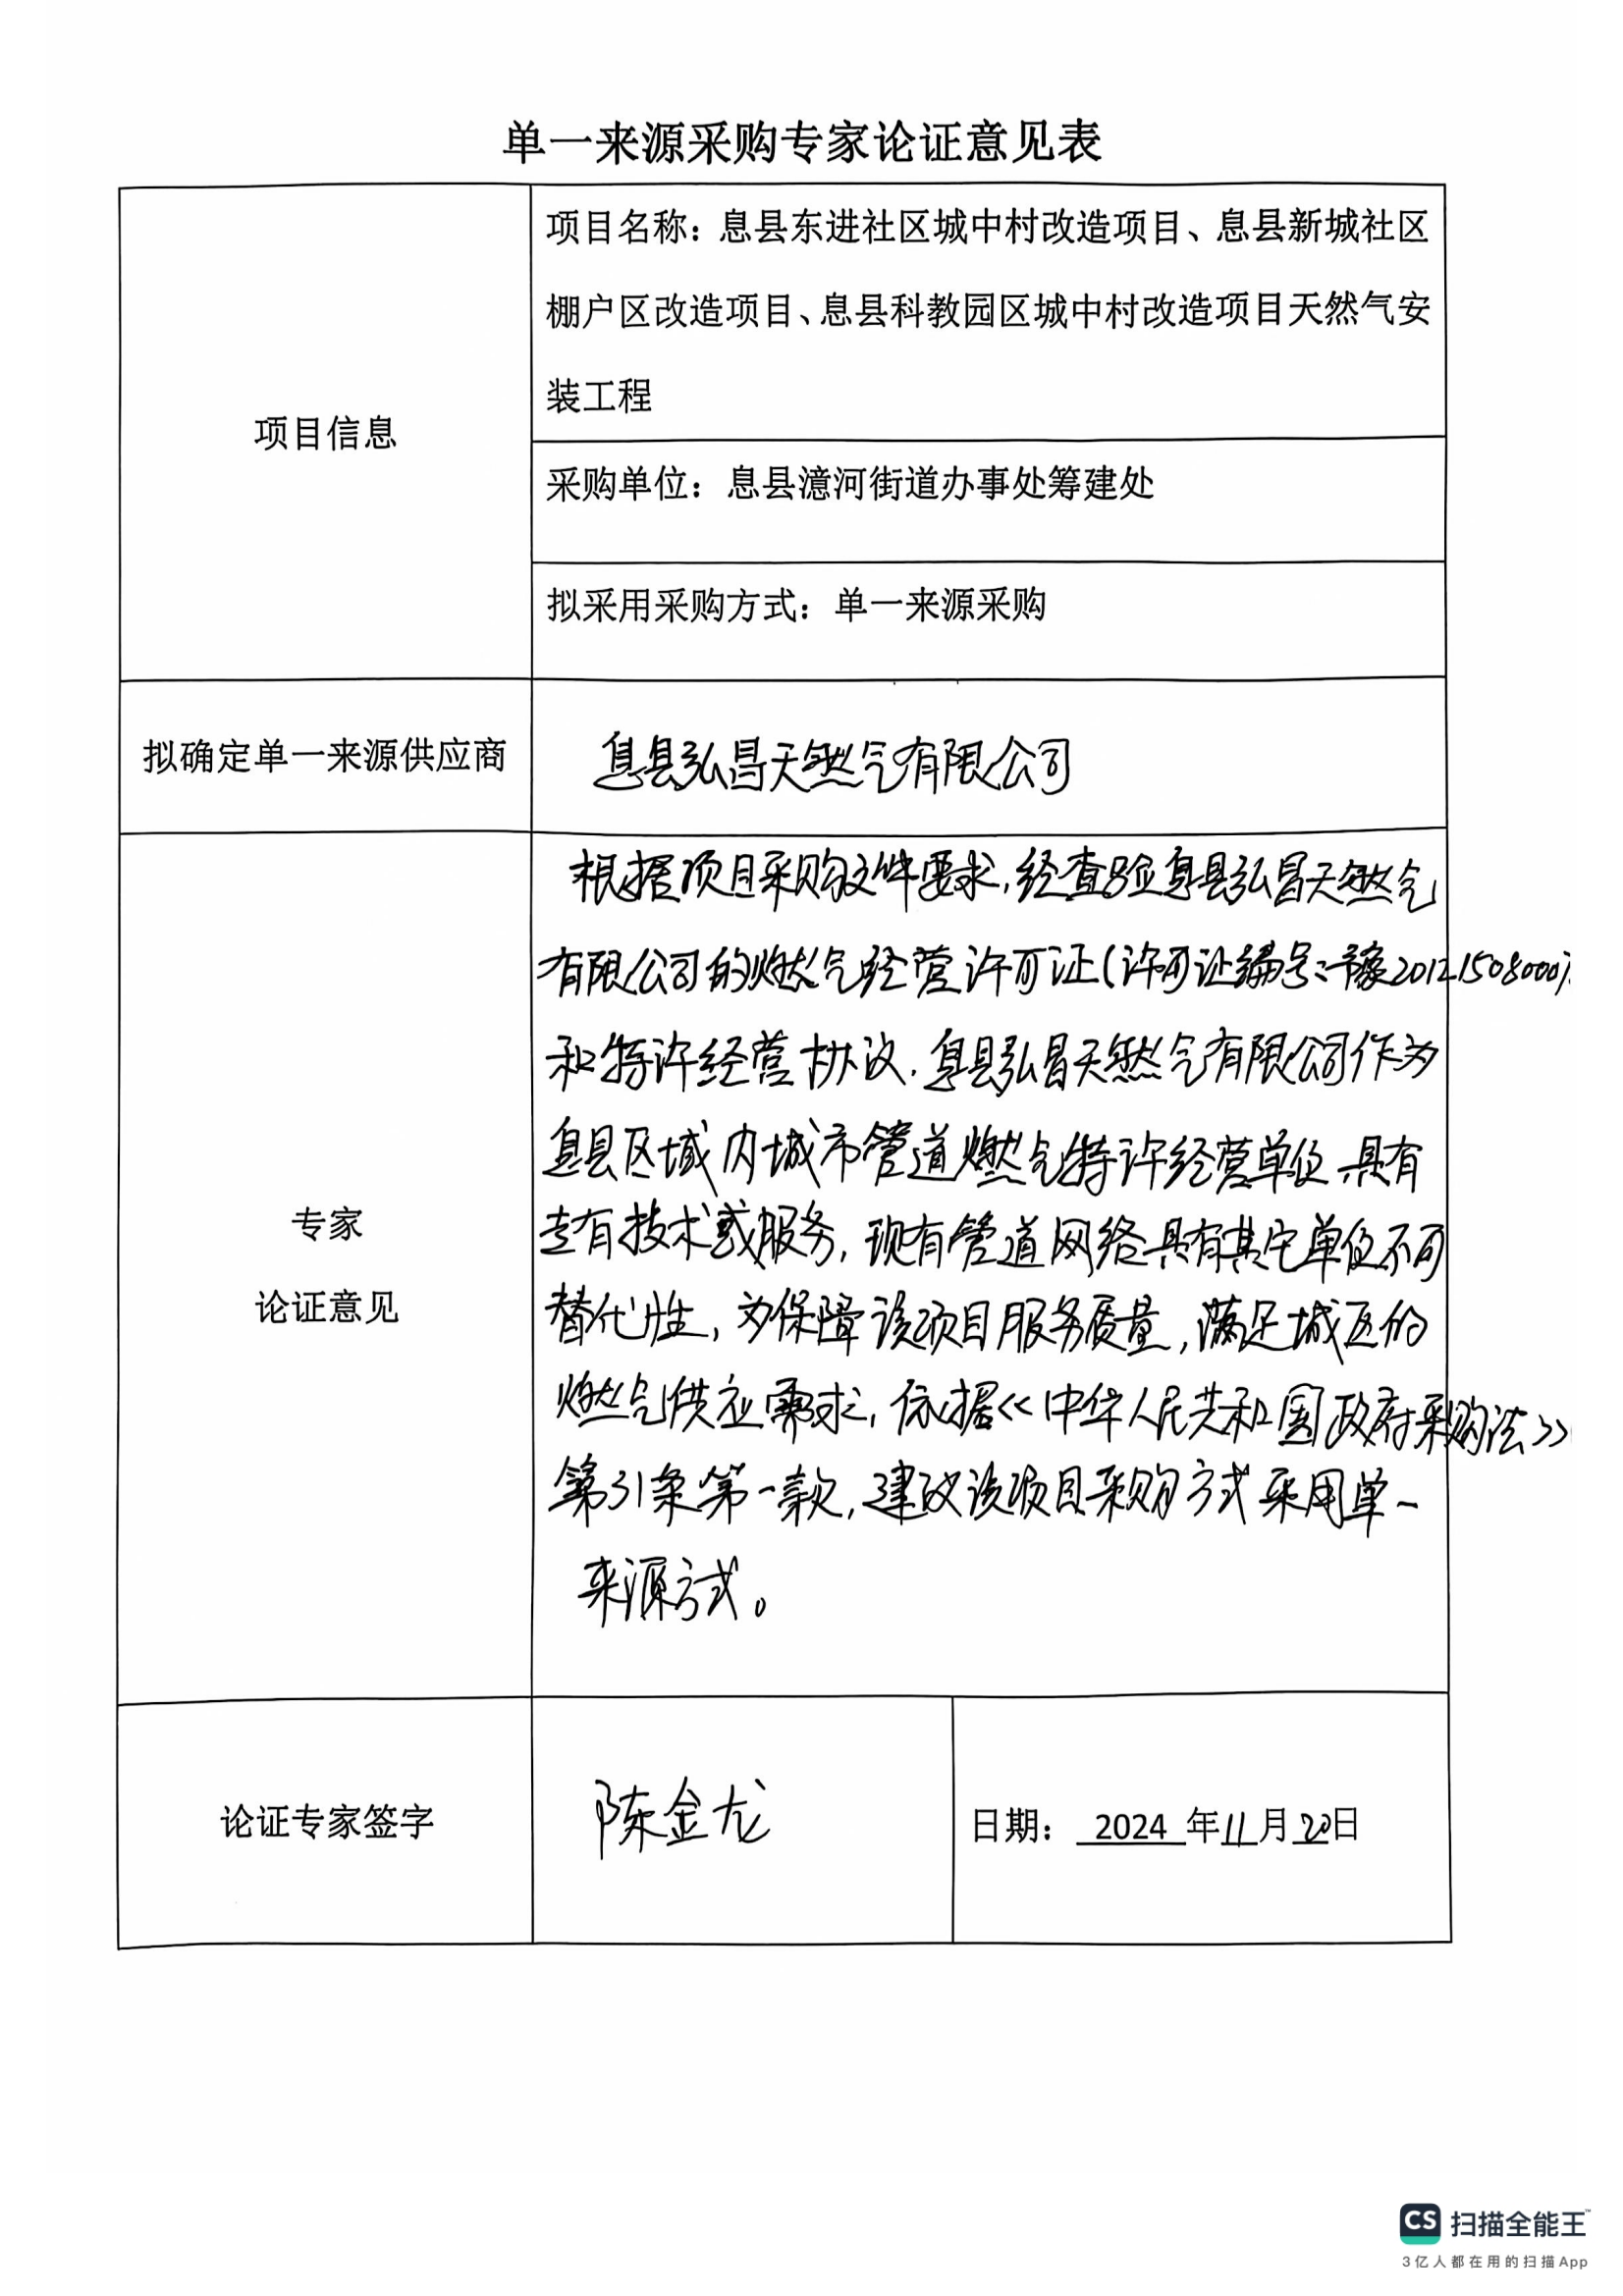 单一来源采购专家论证意见表
项目信息
项目名称：息县东进社区城中村改造项目、息县新城社区
棚户区改造项目、息县科教园区城中村改造项目天然气安
装工程
采购单位：息县澺河街道办事处筹建处
拟采用采购方式：单一来源采购
拟确定单一来源供应商
息县弘昌天然气有限公司
专家
论证意见
根据项目采购文件要求,经查验息县弘昌天然气
有限公司的燃气经营许可证(许可证编号:豫201215080001
和特许经营协议.息县弘昌天然气有限公司作为
息县区域内城市管道燃气特许经营单位,具有
专有技术或服务,现有管道网络具有其它单位不可
替代性,为保障该项目服务质量,满足城区的
燃气供应需求,依据《中华人民共和国政府采购法》
第31条第一款,建议该项目采购方式采用单一
来源方式。
论证专家签字
陈金龙
日期： 2024 年11月20日
CS 扫描全能王™
3亿人都在用的扫描App